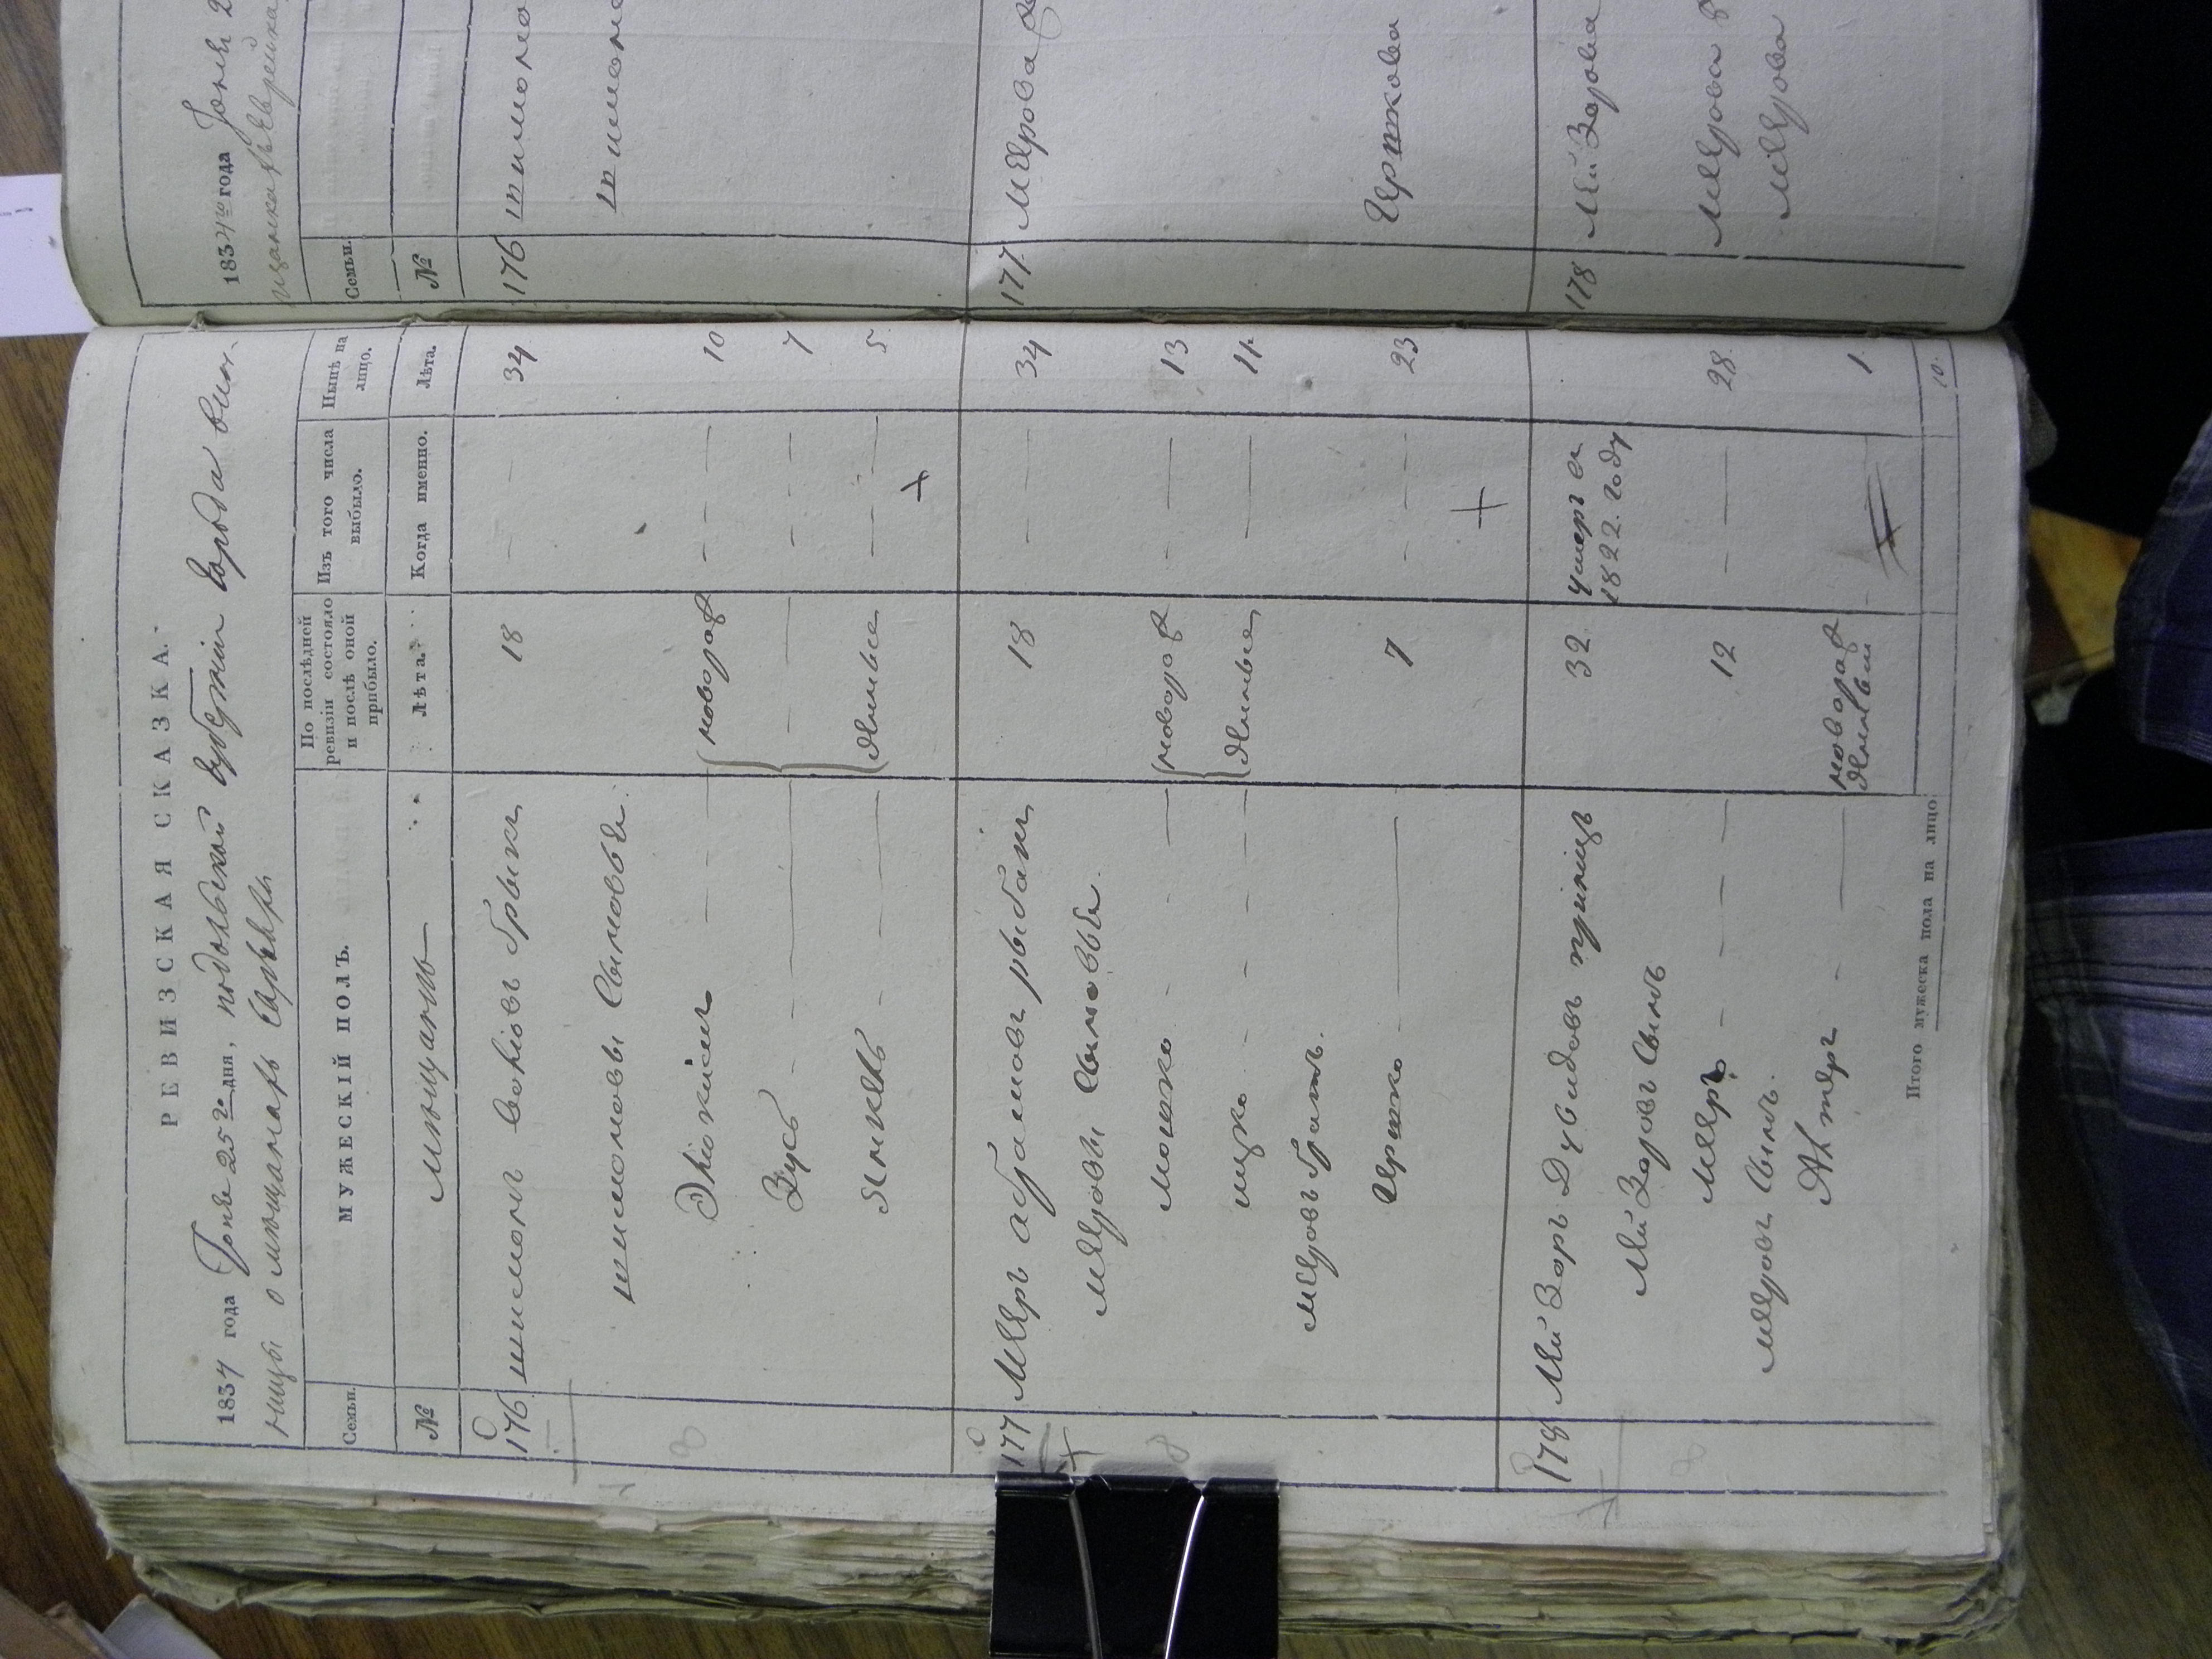 РЕВИЗСКАЯ СКАЗКА.
1834 года Іюня 25го дня, подольской губерніи города вин-
ницы о мещанахъ Евреяхъ
Семьи.
МУЖЕСКІЙ ПОЛЪ.
По послѣдней ревизіи состояло и послѣ оной прибыло.
Изъ того числа выбыло.
Нынѣ на лицо.
№
мещане
Лѣта.
Когда именно.
Лѣта.
176 шимонъ 18 34
шимоновы Сыновья:
новорож 10
Зусь 7
Янкель 5
177 Мееръ абрамовъ рыбакъ 18 34
мееровы Сыновья.
мошко новорож 13
ицко 11
мееровъ братъ.
Ершко 7 23
178 Мейзоръ Дувидовъ 32 умеръ въ 1822. году
Мейзоровъ Сынъ
мееръ 12 28
мееровъ Сынъ.
новорож 1.
Итого мужеска пола на лицо 10.
1834го года Іюня 2
Семьи.
№
176 шимоно
шимоно
177 меерова
Ершкова
178 Мейзорова
меерова
меерова